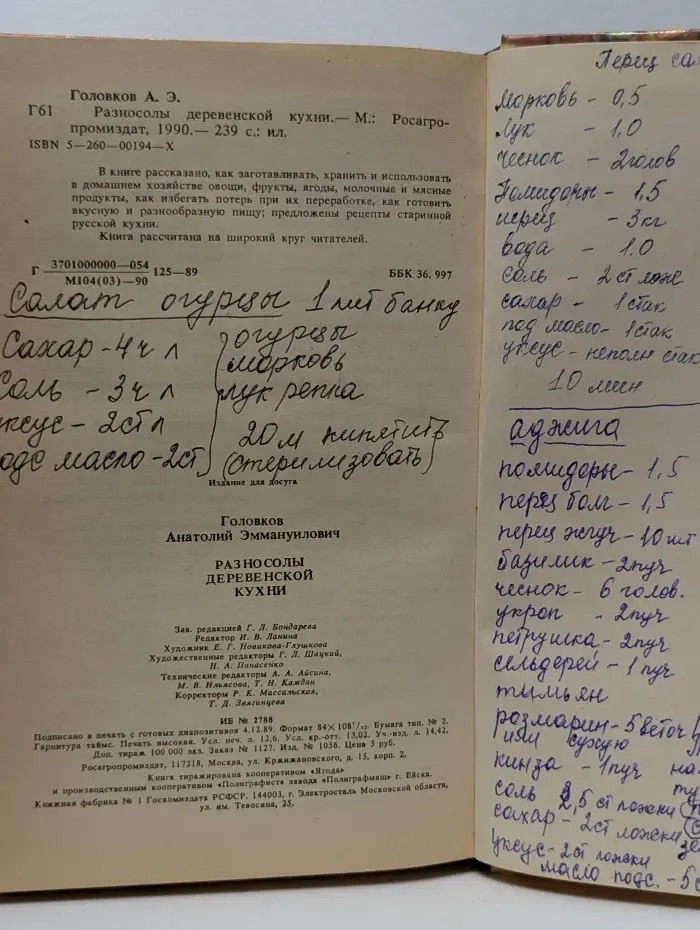 Головков А. Э.
Г61 Разносолы деревенской кухни.— М.: Росагро-
промиздат, 1990.— 239 с.: ил.
ISBN 5—260—00194—X
В книге рассказано, как заготавливать, хранить и использовать
в домашнем хозяйстве овощи, фрукты, ягоды, молочные и мясные
продукты, как избегать потерь при их переработке, как готовить
вкусную и разнообразную пищу; предложены рецепты старинной
русской кухни.
Книга рассчитана на широкий круг читателей.
Г 3701000000—054
М104(03)—90
125—89
ББК 36.997
Салат огурцы 1 лит банку
Сахар - 4 ч л
Соль - 3 ч л
уксус - 2 ст л
подс масло - 2ст
огурцы
морковь
лук репка
20 м кипятить
(стерилизовать)
Издание для досуга
Головков
Анатолий Эммануилович
РАЗНОСОЛЫ
ДЕРЕВЕНСКОЙ
КУХНИ
Зав. редакцией Г. Л. Бондарева
Редактор И. В. Ланина
Художник Е. Г. Новикова-Глушкова
Художественные редакторы Г. Л. Шацкий,
Н. А. Панасенко
Технические редакторы А. А. Айсина,
М. В. Ильясова, Т. Н. Каждан
Корректоры Р. К. Массальская,
Т. Д. Звягинцева
ИБ № 2788
Подписано в печать с готовых диапозитивов 4.12.89. Формат 84×108¹/₃₂. Бумага тип. № 2.
Гарнитура таймс. Печать высокая. Усл. печ. л. 12,6. Усл. кр.-отт. 13,02. Уч.-изд. л. 14,42.
Доп. тираж 100 000 экз. Заказ № 1127. Изд. № 1056. Цена 3 руб.
Росагропромиздат, 117218, Москва, ул. Кржижановского, д. 15, корп. 2.
Книга тиражирована кооперативом «Ягода»
и производственным кооперативом «Полиграфист» завода «Полиграфмаш» г. Ейска.
Книжная фабрика № 1 Госкомиздата РСФСР. 144003, г. Электросталь Московской области,
ул. им. Тевосяна, 25,
Перец сал
морковь - 0,5
лук - 1,0
чеснок - 2 голов
Помидоры - 1,5
перец - 3 кг
вода - 1.0
соль - 2 ст лож
сахар - 1 стак
под масло - 1 стак
уксус - неполн стак
10 мин
аджика
помидоры - 1,5
перец болг - 1,5
перец жгуч - 10 шт
базилик - 2 пуч
чеснок - 6 голов.
укроп - 2 пуч
петрушка - 2 пуч
сельдерей - 1 пуч
тимьян
розмарин - 5 веточ
или сухую
кинза - 1 пуч
соль 2,5 ст ложки
сахар - 2 ст ложки
уксус - 2 ст ложки
масло подс. - 5 с